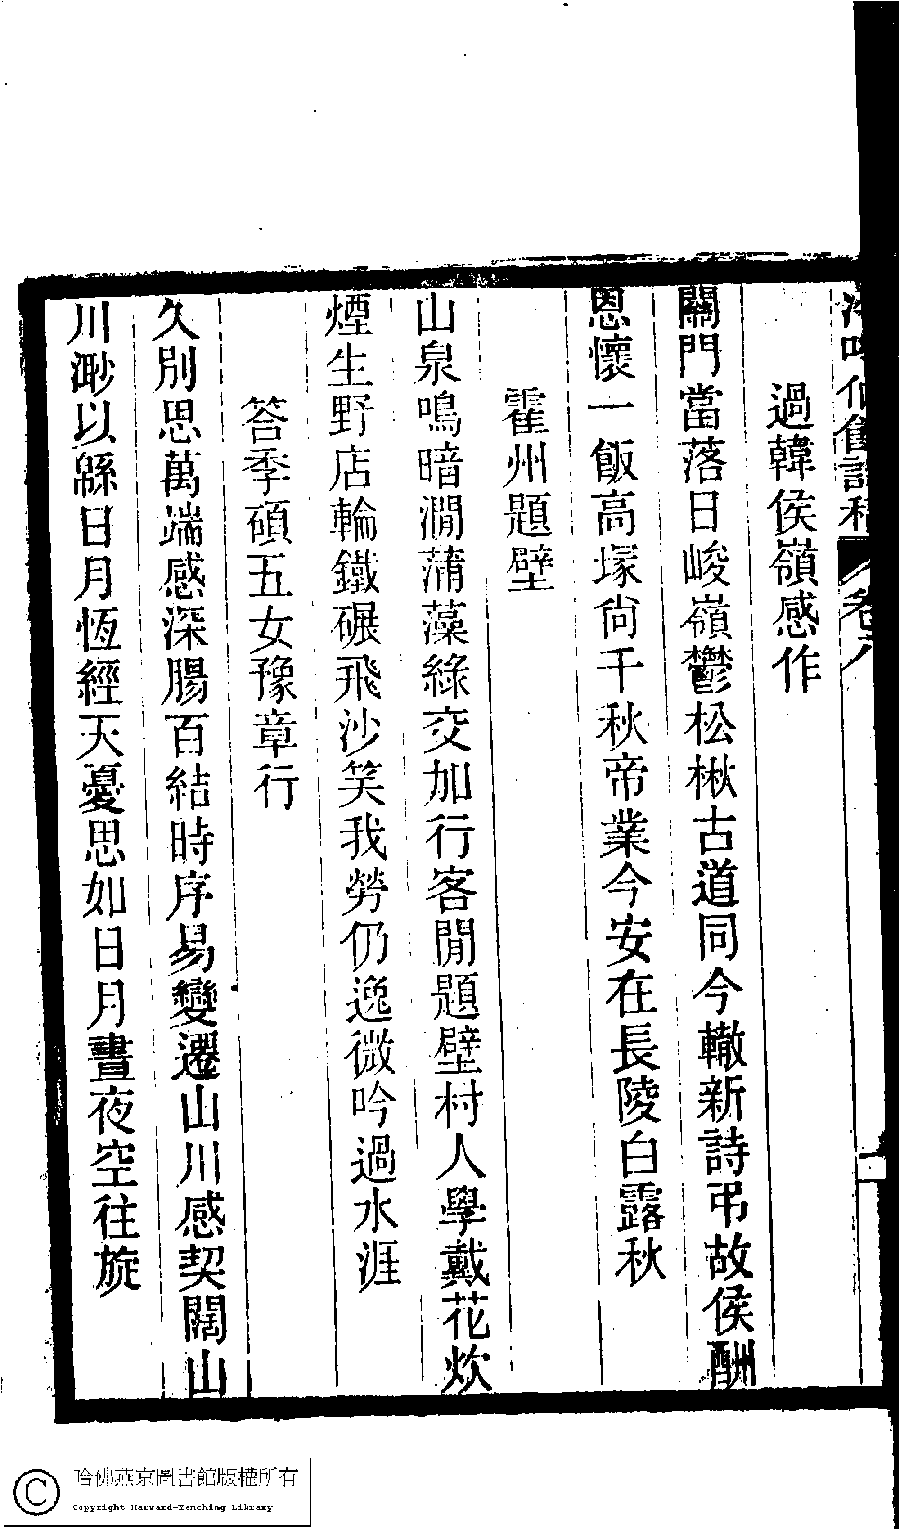 過韓侯嶺感作
關門當落日峻嶺鬱松楸古道同今轍新詩弔故侯酬
恩懷一飯高塚尙千秋帝業今安在長陵白露秋
霍州題壁
山泉鳴暗澗蒲藻綠交加行客閒題壁村人學戴花炊
煙生野店輪鐵碾飛沙笑我勞仍逸微吟過水涯
答季碩五女豫章行
久別思萬端感深腸百結時序易變遷山川感契闊山
川渺以緜日月恆經天憂思如日月晝夜空往旋
哈佛燕京圖書館版權所有
Copyright Harvard-Yenching Library